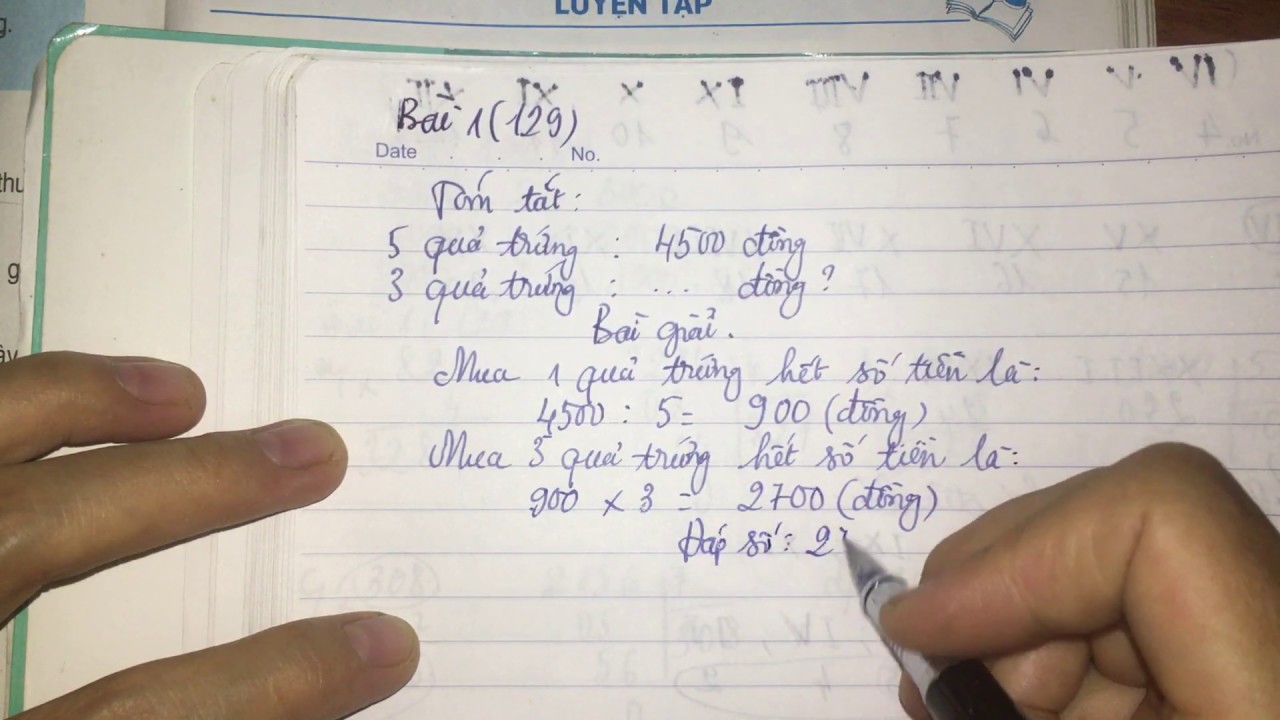 LUYỆN TẬP
g.
thu
g
ây
Bài 1 (129)
Date No.
Tóm tắt:
5 quả trứng : 4500 đồng
3 quả trứng : ... đồng?
Bài giải.
Mua 1 quả trứng hết số tiền là:
4500 : 5 = 900 (đồng)
Mua 3 quả trứng hết số tiền là:
900 x 3 = 2700 (đồng)
Đáp số: 27